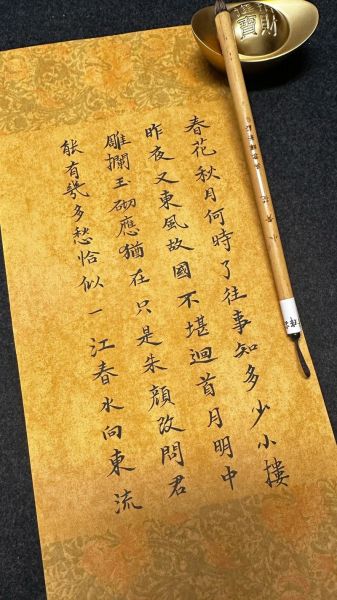 春花秋月何時了往事知多少小摟
昨夜又東風故國不堪迴首月明中
雕攔玉砌應猶在只是朱顔改問君
能有幾多愁恰似一江春水向東流
寶
財